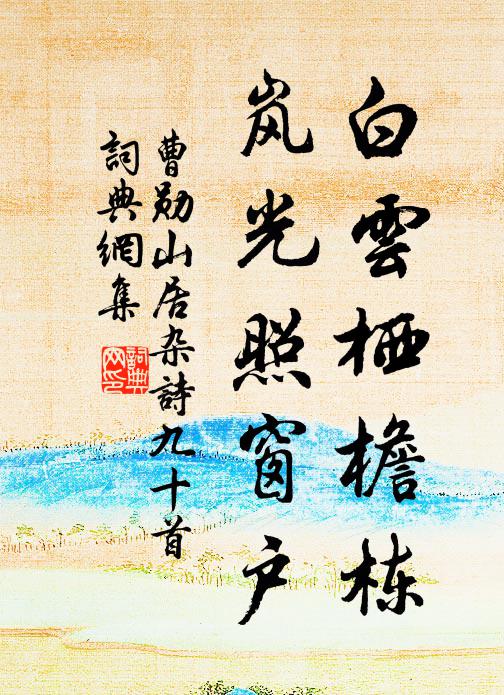 白雲栖檐栋
岚光照窗户
曹勋山居杂詩九十首
詞典網集
詞典网印